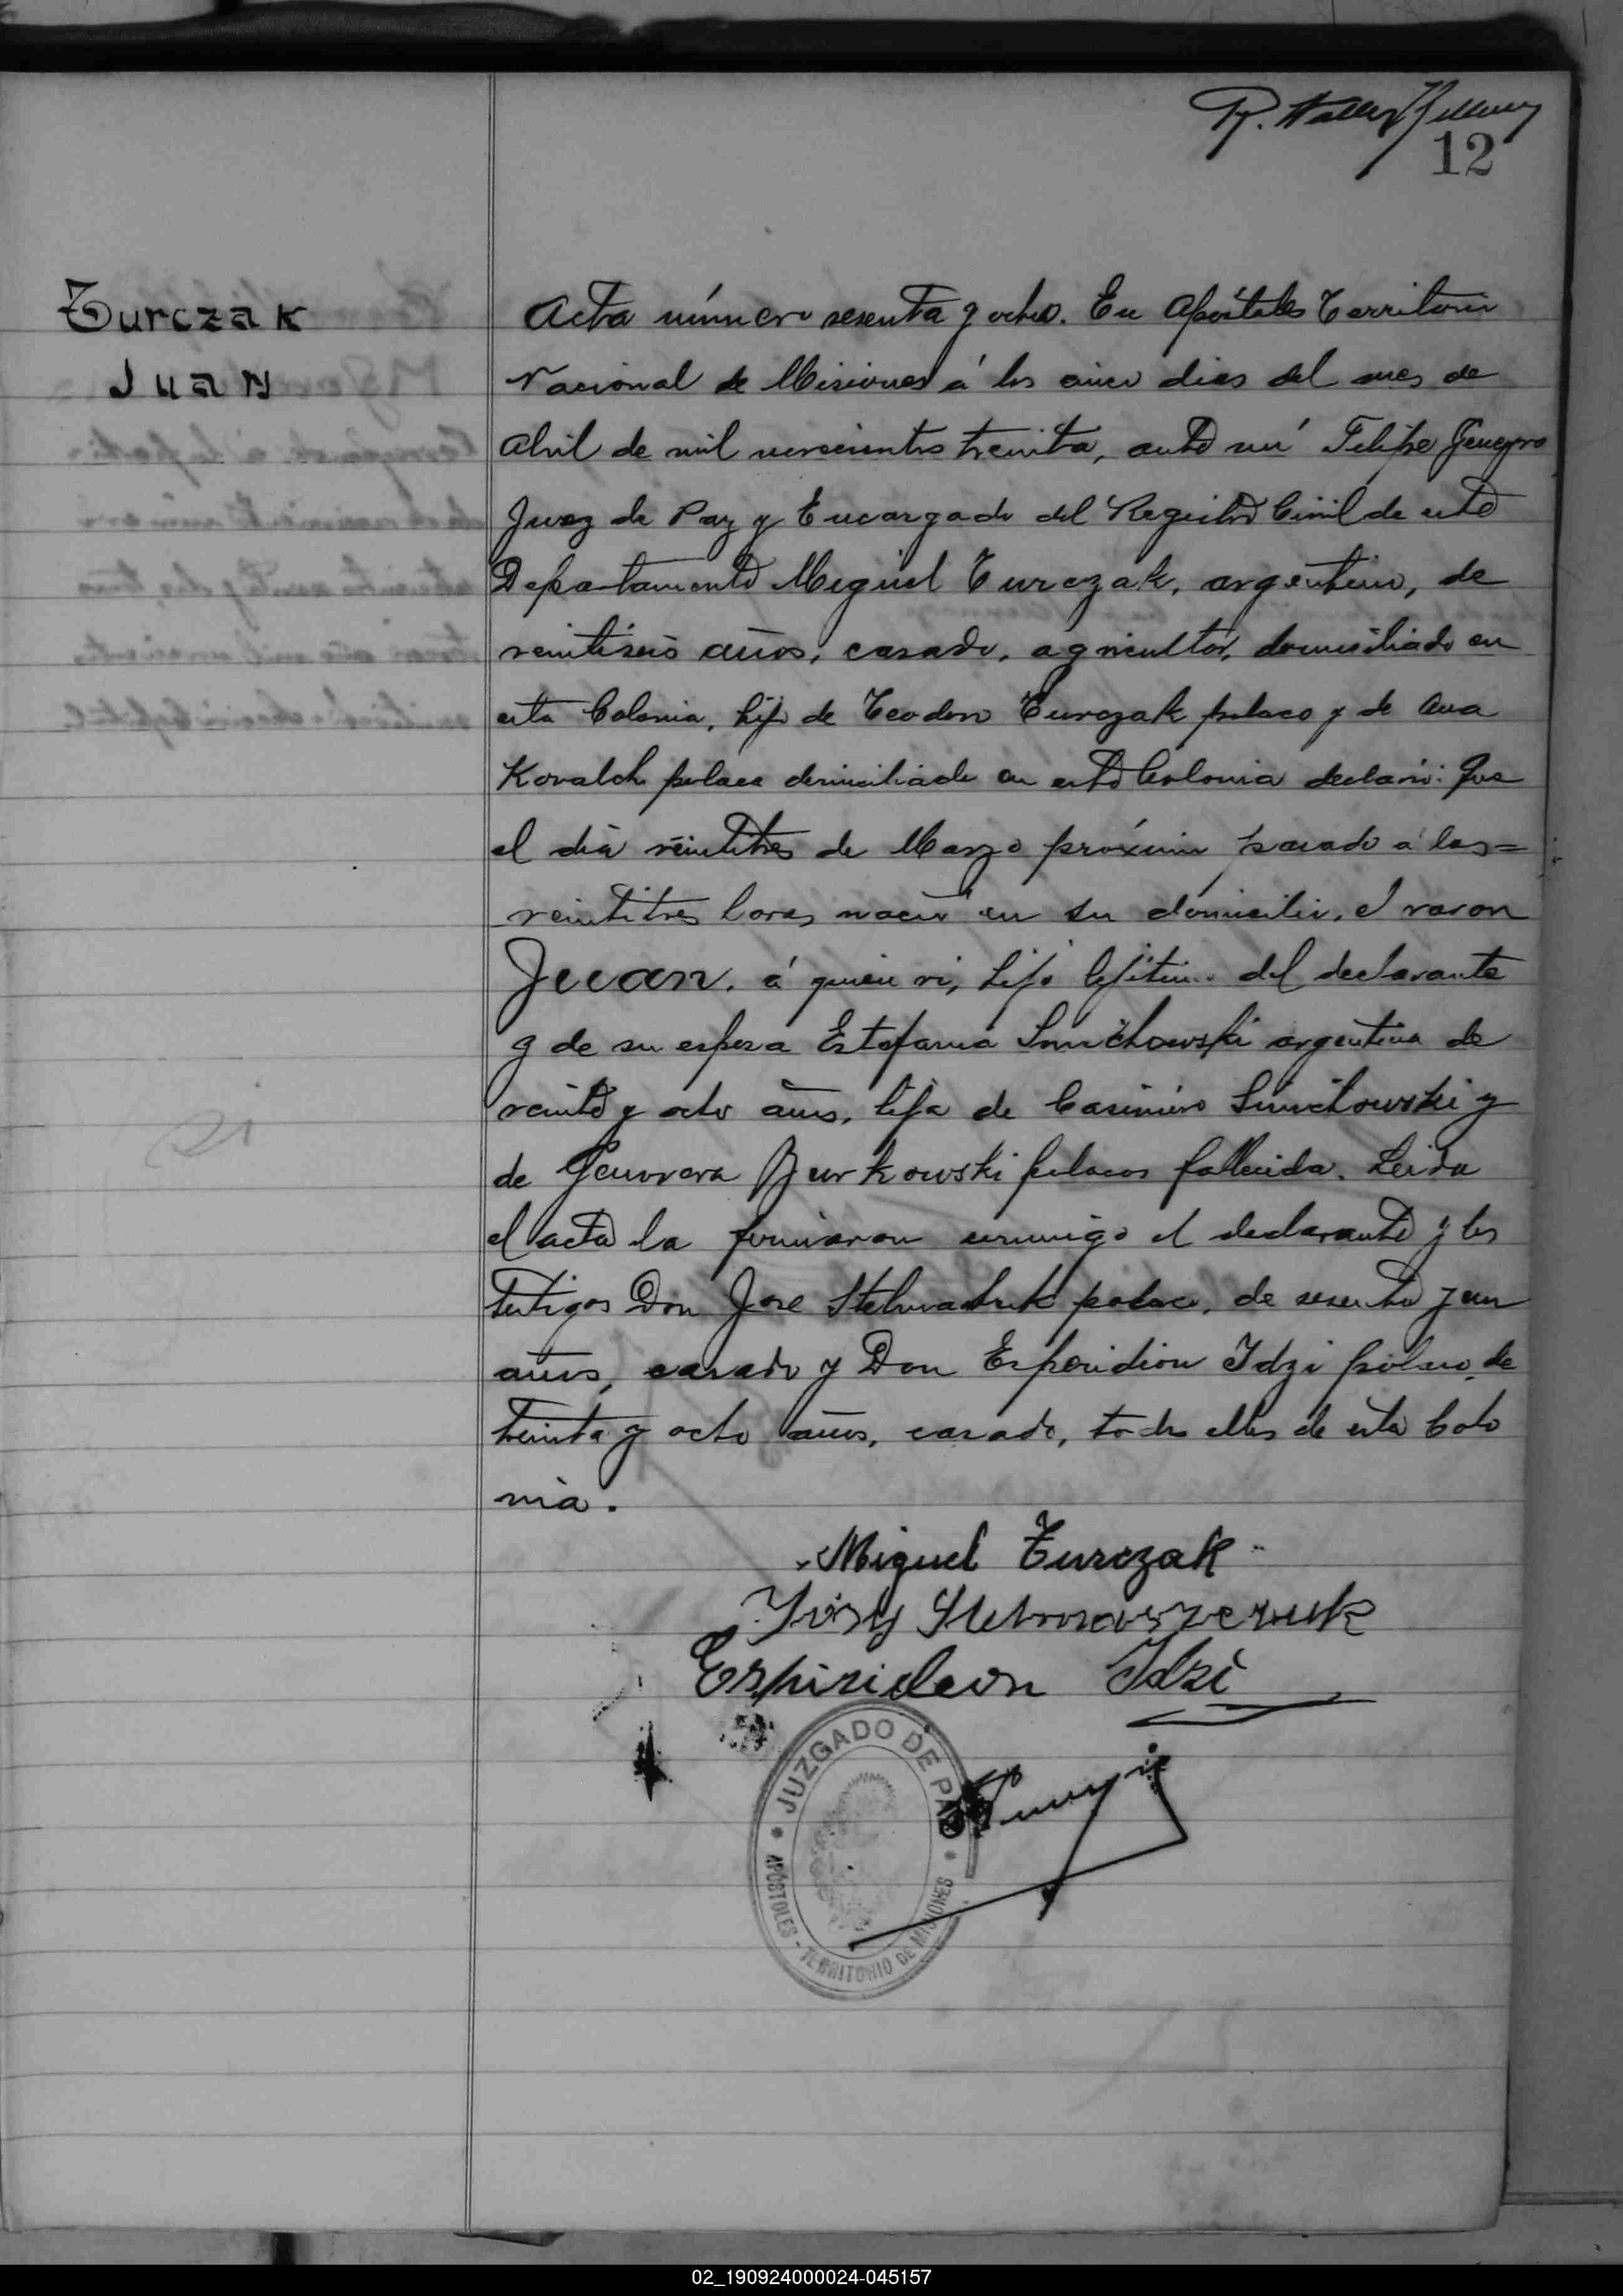 12
Turczak
Juan
Acta número sesenta y ocho. En Apóstoles Territorio
Nacional de Misiones á los cinco dias del mes de
Abril de mil novecientos treinta, ante mí Felipe
Juez de Paz y Encargado del Registro Civil de este
Departamento Miguel Turczak, argentino, de
veintiseis años, casado, agricultor, domiciliado en
esta Colonia, hijo de Teodoro Turczak polaco y de Ana
Kovalch polaca domiciliado en esta Colonia declaró: Que
el día veintitres de Marzo próximo pasado á las=
veintitres horas nació en su domicilio, el varon
Juan, á quien vi, hijo lejitimo del declarante
y de su esposa Estefania argentina de
veinte y ocho años, hija de Casimiro y
de Genovera Burkowski polacos fallecida. Leida
el acta la firmaron conmigo el declarante y los
testigos Don Jose polaco, de sesenta y un
años, casado y Don Esperidion Idzi polaco, de
treinta y ocho años, casado, todos ellos de esta Colo
nia.
Miguel Turczak
Espirideon Idzi
JUZGADO DE PAZ
APOSTOLES - TERRITORIO DE MISIONES
02_190924000024-045157